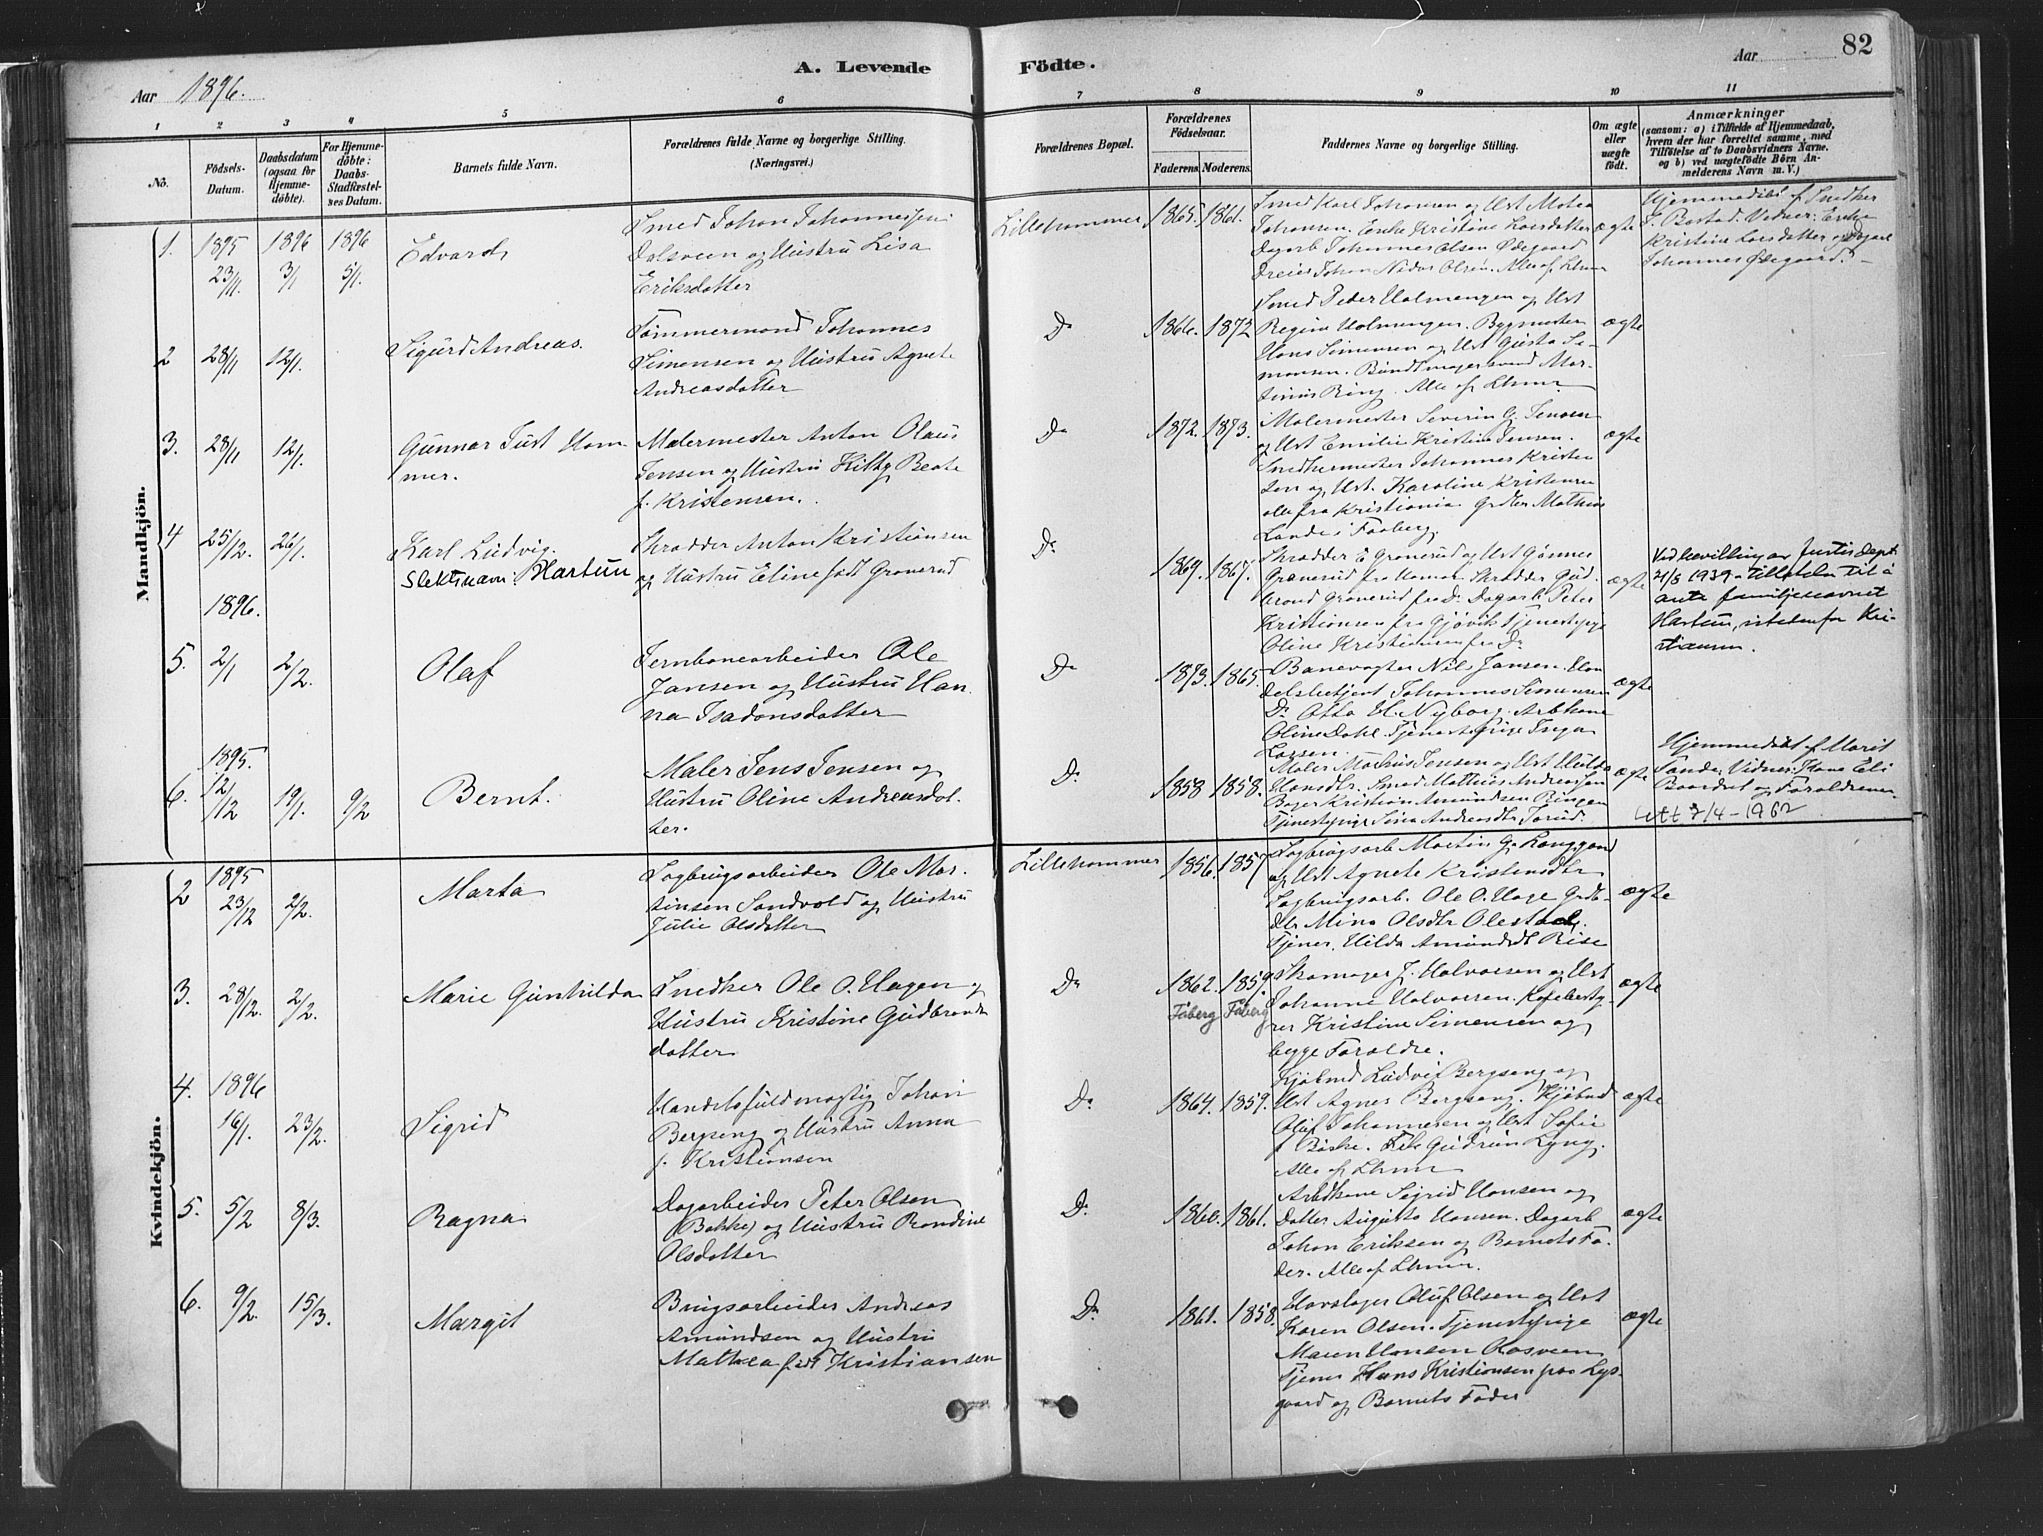 A. Levende Födte.
Aar 1896.
Aar 82
1 2 3 4 5 6 7 8 9 10 11
No.
Födsels-Datum.
Daabsdatum (ogsaa for Hjemme-döbte).
For Hjemme-döbte: Daabs-Stadfæstel-ses Datum.
Barnets fulde Navn.
Forældrenes fulde Navne og borgerlige Stilling. (Næringsvei.)
Forældrenes Bopæl.
Forældrenes Födselsaar.
Faderens. Moderens.
Faddernes Navne og borgerlige Stilling.
Om ægte eller uægte födt.
Anmærkninger
(saasom: a) i Tilfælde af Hjemmedaab, hvem der har forrettet samme, med Tilföielse af to Daabsvidners Navne. og b) ved uægtefödte Börn An-melderens Navn m. V.)
Mandkjön.
1. 1895 23/11. 1896 3/1 1896 5/1. Edvard
Smed Johan Johannessen
Dalsveen og Hustru Lisa
Eriksdatter
Lillehammer 1865. 1861.
Smed Karl Johansen og Ust Matea
Johansen. Enke Kristine Larsdatter
Dagarb. Johannes Olsen Ødegaard
Dreier Johan Nidar Olsen. Alle af Lhmr
ægte
Hjemmedöbt af Snedker
J. Bastad. Vidner: Enke
Kristine Larsdatter og Dagarb
Johannes Ødegaard.
2 28/11 12/1. Sigurd Andreas.
Tømmermand Johannes
Simensen og Hustru Agnete
Andreasdatter
Do 1866. 1872
Smed Peder Holmengen og Ust
Regine Holmengen. Bygmester
Hans Simensen og Ust Gusta Si-
mensen. Bundtmagersvend Mar-
tinius Ring. Alle af Lhmr
ægte
3. 28/11 12/1. Gunnar Just Ham
mer.
Malermester Anton Olaus
Jensen og Hustru Kitty Beate
f. Kristensen.
Do 1872. 1873.
Malermester Severin G. Jensen
og Ust Emilie Kristine Jensen.
Snedkermester Johannes Kristen
sen og Ust. Karoline Kristensen
alle fra Kristiania Grdbr Mathias
Lande i Faaberg.
ægte
4 25/12. 26/1. Karl Ludvig.
Slektsnavn: Hartun
Skrædder Anton Kristiansen
og Hustru Eline født Granerud
Do 1869. 1867.
Skrædder E Granerud og Ust
Granerud fra Hamar Skrædder Gud
brand Granerud fra Do. Dagarb. Peter
Kristiansen fra Gjøvik Tjenestepige
Oline Kristiansen fra Do
ægte
Ved bevilling av Justis Dept
21/8 1939 tillatelse til å
anta familjenavnet
Hartun, istedenfor Kri-
stiansen.
1896.
5. 2/1 2/2. Olaf
Jernbanearbeider Ole
Jansen og Hustru Han
na Isadonsdatter
Do 1873. 1865.
Banevogter Nils Jansen. Han
delsbetjent Johannes Simensen
Do Otto H. Nyborg. Arbkone
Oline Dahl. Tjenestepige Inga
Larsen.
ægte
1895.
6. 12/12 19/1. 9/2 Bernt.
Maler Jens Jensen og
Hustru Oline Andreasdat.
ter.
Do 1858 1858.
Maler Mathias Jensen og Ust Hulda
Hansdtr. Smed Mathias Andreassen
Bager Kristian Amundsen Ringen
Tjenestepige Sina Andreasdtr Jorud.
ægte
Hjemmedöbt af Marit
Sande. Vidner: Kone Eli
Baardset og Forældrene.
utt 7/4-1962
Kvindekjön.
2 1895 23/12 2/2. Marta
Sagbrugsarbeider Ole Mar.
tinsen Sandvold og Hustru
Julie Olsdatter
Lillehammer 1856. 1857
Sagbrugsarb Martin G.
og Ust Agnete Kristensdtr
Sagbrugsarb. Ole O. Hage Grdb-
dtr Mina Olsdtr Olestad.
Tjener. Hilda Amundsdt Rise
ægte
3. 28/12. 2/2. Marie Gunhilda
Snedker Ole O. Hagen og
Hustru Kristine Gudbrands
datter
Do 1862. Fåberg 1859. Fåberg
Skomager J. Halvorsen og Ust
Johanne Halvorsen. Kafebesty-
rer Kristine Simensen og
begge Forældre.
ægte
4. 1896 16/1. 23/2. Sigrid
Handelsfuldmægtig Johan
Bergseng og Hustru Anna
f. Kristiansen
Do 1864. 1859.
Kjøbmd Ludvig Bergseng og
Ust Agnes Bergseng. Kjøbmd
Olaf Johannesen og Ust Sofie
f Bøske. Frk Gudrun Lyng.
Alle af Lhmr
ægte
5. 5/2 8/3. Ragna
Dagarbeider Peter Olsen
(Bakke) og Hustru Rondine
Olsdatter
Do 1860. 1861.
Arbdkone Sigrid Hansen og
Datter Augusta Hansen. Dagarb
Johan Eriksen og Barnets Fa-
der. Alle af Lhmr.
ægte
6. 9/2. 15/3. Margit
Brugsarbeider Andreas
Amundsen og Hustru
Mathea født Kristiansen
Do 1861. 1858.
Hovslager Oluf Olsen og Ust
Karen Olsen. Tjenestepige
Maren Hansen Rosveen
Tjener Hans Kristiansen paa Lys-
gaard og Barnets Fader
ægte